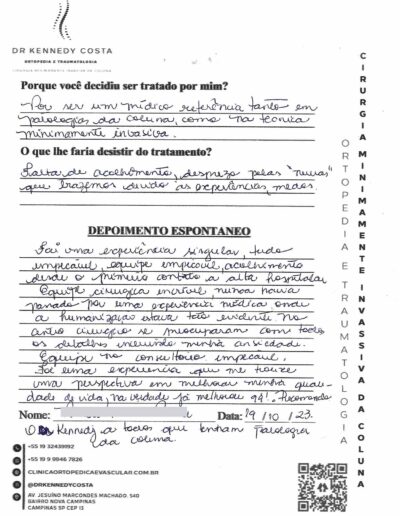 DR KENNEDY COSTA
ORTOPEDIA E TRAUMATOLOGIA
Porque você decidiu ser tratado por mim?
Por ser um médico referência tanto em
patologias da coluna, como na técnica
minimamente invasiva.
O que lhe faria desistir do tratamento?
Falta de acolhimento, desprezo pelas "neuras"
que trazemos devido as experiências, medos.
DEPOIMENTO ESPONTANEO
Foi uma experiência singular, tudo
impecável, equipe impecável, acolhimento
desde o primeiro contato a alta hospitalar
Equipe cirurgica incrível, nunca havia
passado por uma experiência médica onde
a humanização estava tão evidente no
centro cirurgico se preocuparam com todos
os detalhes incluindo minha ansiedade.
Equipe no consultorio impecável.
Foi uma experiencia que me trouxe
uma perspectiva em melhorar minha quali-
dade de vida, na verdade já melhorou 99%! Recomendo
Nome:
Data: 19/10/23.
o Dr Kennedy a todos que tenham patologia
da coluna.
+55 19 32439192
+55 19 9 9846 7826
CLINICAORTOPEDICAEVASCULAR.COM.BR
@DRKENNEDYCOSTA
AV. JESUÍNO MARCONDES MACHADO, 540
BAIRRO NOVA CAMPINAS
CAMPINAS SP CEP 13
ORTOPEDIA E TRAUMATOLOGIA
CIRURGIA MINIMAMENTE INVASSIVA DA COLUNA